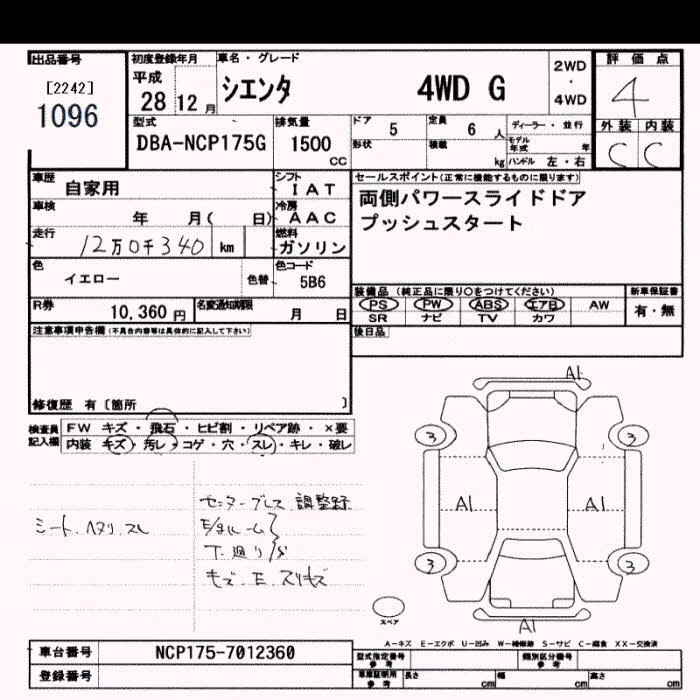 出品番号
[2242]
1096
初度登録年月
平成
28 12 月
車名・グレード
シエンタ 4WD G
2WD
・
4WD
評 価 点
4
外 装 内 装
C C
型式
DBA-NCP175G
排気量
1500
CC
ドア 5
定員 6 人
ディーラー・並行
形状
積載 kg
モデル年式 年
ハンドル 左・右
車歴 自家用
シフト
IAT
車検 年 月( 日)
冷房
AAC
走行 12万0千340 km
燃料
ガソリン
色 イエロー
色替
色コード
5B6
R券 10,360 円
名変通知期限 月 日
セールスポイント(正常に機能するものに限ります)
両側パワースライドドア
プッシュスタート
装備品(純正品に限り○をつけてください)
PS PW ABS エアB AW
SR ナビ TV カワ
新車保証書
有・無
後日品
注意事項申告欄(不具合内容等は具体的に記入して下さい)
修復歴 有〔箇所 〕
検査員記入欄
FW キズ・飛石・ヒビ割・リペア跡・×要
内装 キズ・汚レ・コゲ・穴・スレ・キレ・破レ
シート.ヘタリ.スレ
センターブレス 調整録
E/タルーム
下廻り
キズ.E.スリキズ
A1
3 3
A1 A1
3 3
スペア
A1
A-キズ E-エクボ U-凹み W-補修跡 S-サビ C-腐食 XX-交換済
車台番号 NCP175-7012360
登録番号
型式指定番号 参考
類別区分番号 参考
車庫証明用 参考
長さ cm
幅 cm
高さ cm